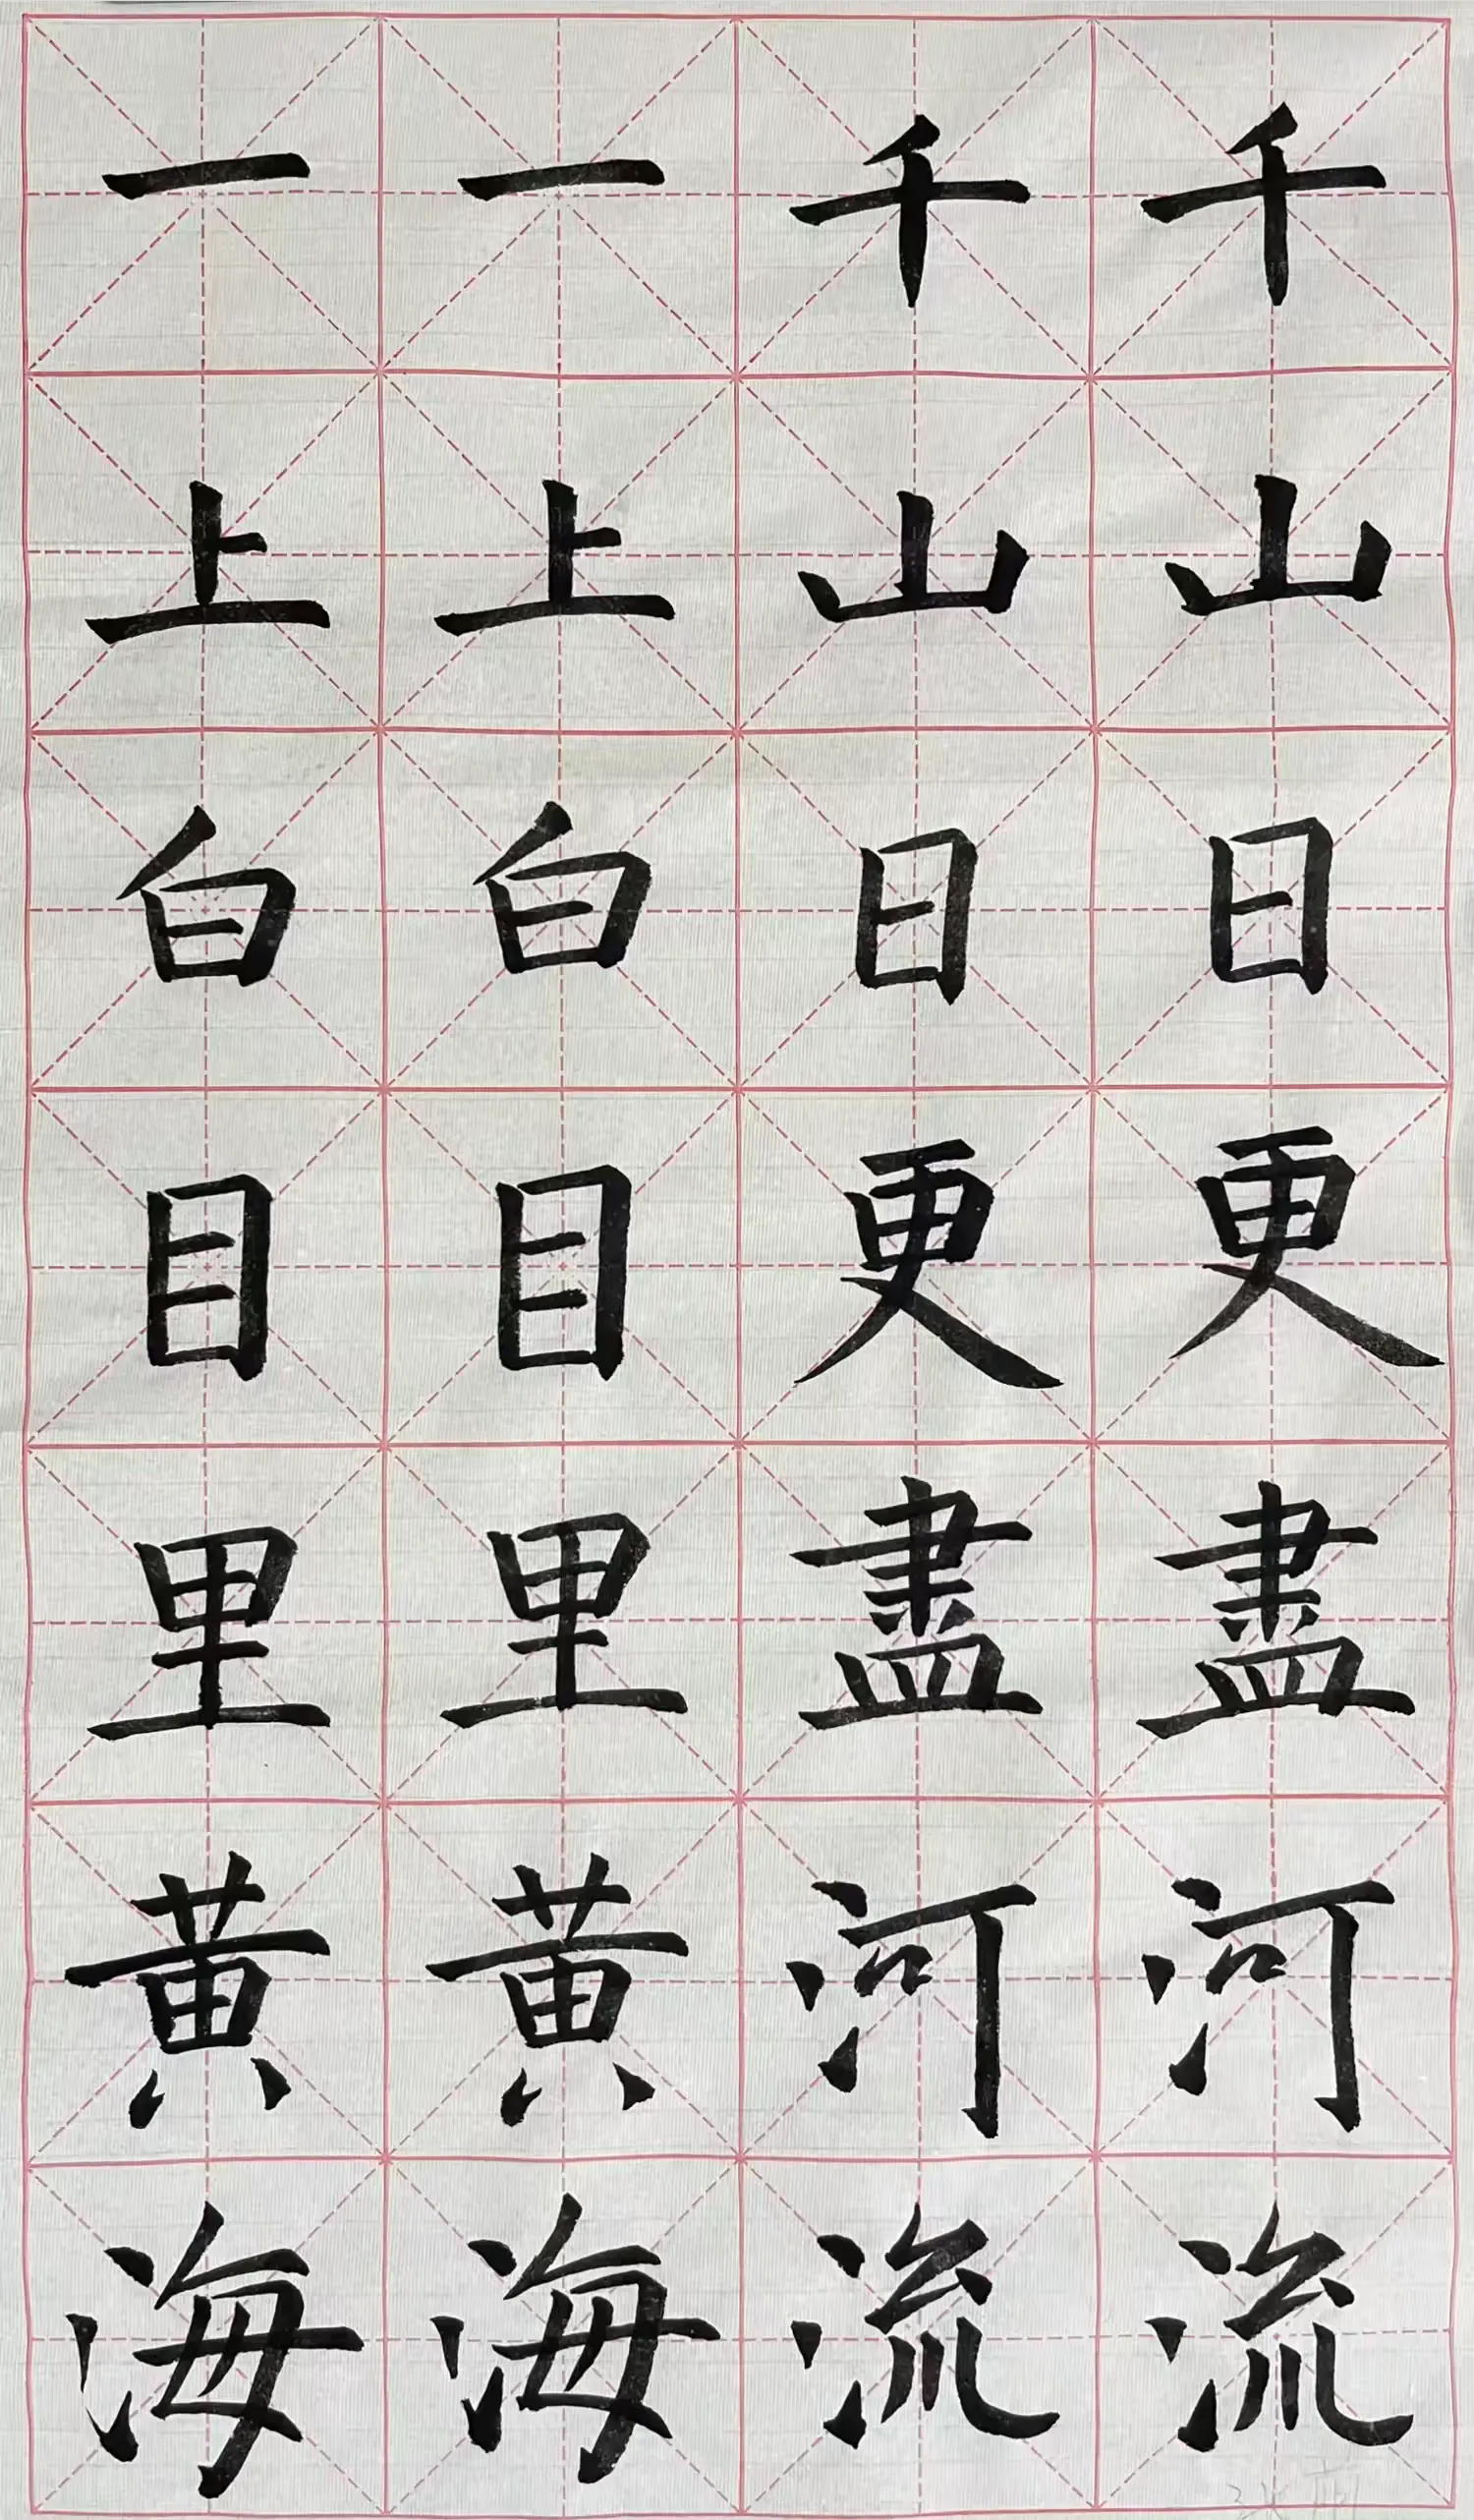 千山日更盡河流
千山日更盡河流
一上白目里黄海
一上白目里黄海